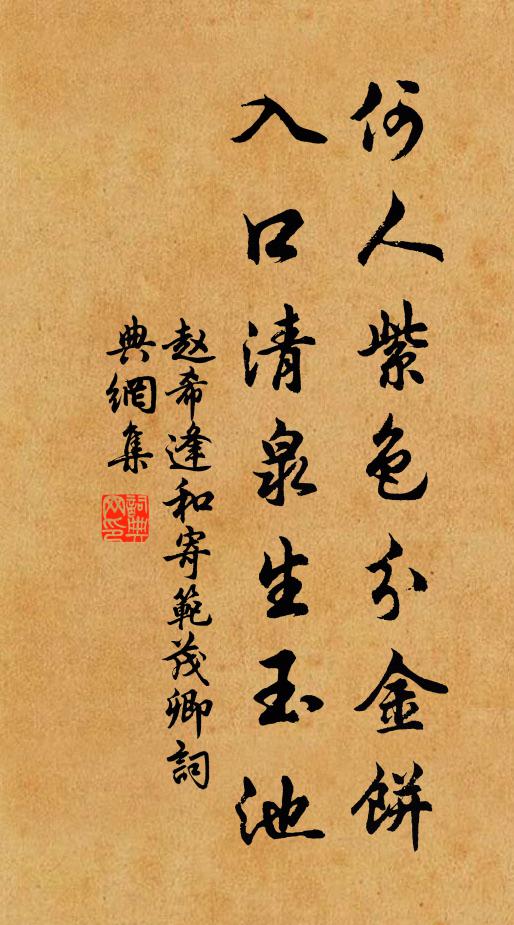 何人紫色分金餅
入口清泉生玉池
赵希逢和寄範茂卿詞
典網集
詞典
网印